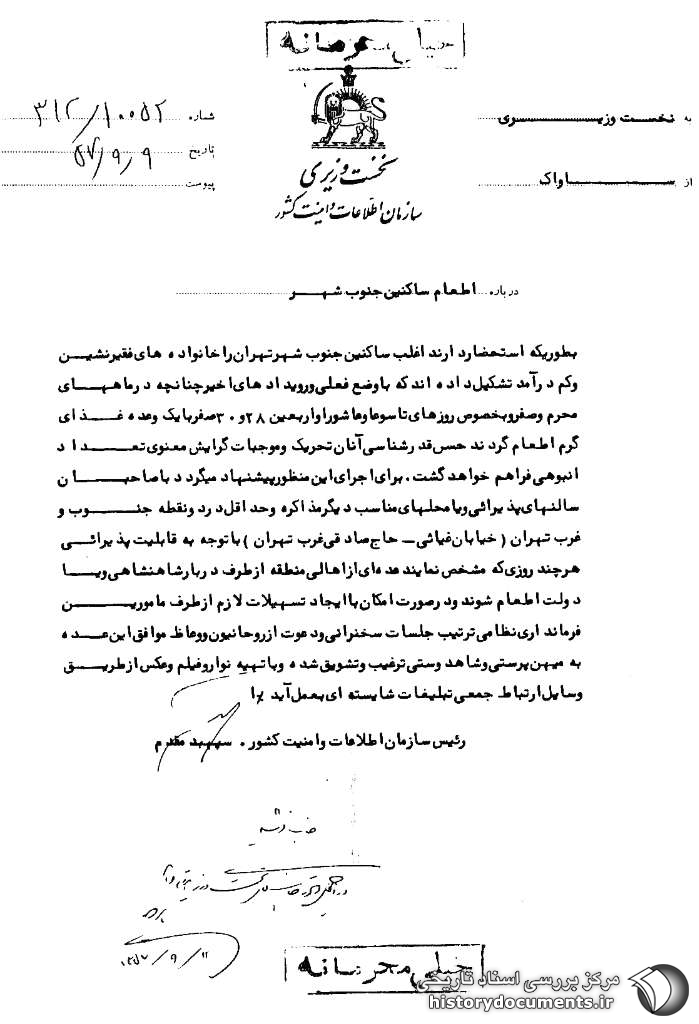 خیلی محرمانه
به نخست وزیری
شماره ۳۱۲/۱۰۰۵۲
تاریخ ۵۷/۹/۹
پیوست
از ساواک
نخست وزیری
سازمان اطلاعات و امنیت کشور
درباره اطعام ساکنین جنوب شهر
بطوریکه استحضار دارند اغلب ساکنین جنوب شهر تهران را خانواده های فقیرنشین
وکم درآمد تشکیل داده اند که باوضع فعلی ورویدادهای اخیر چنانچه درماههای
محرم وصفر و بخصوص روزهای تاسوعا وعاشورا و اربعین ۲۸ و ۳۰ صفر بایک وعده غذای
گرم اطعام گردند حس قدرشناسی آنان تحریک وموجبات گرایش معنوی تعداد
انبوهی فراهم خواهد گشت . برای اجرای این منظور پیشنهاد میگردد با صاحبان
سالنهای پذیرائی ویا محلهای مناسب دیگر مذاکره وحداقل در دو نقطه جنوب و
غرب تهران ( خیابان غیاثی - حاج صادقی غرب تهران ) با توجه به قابلیت پذیرائی
هرچند روزی که مشخص نمایند عده ای از اهالی منطقه از طرف دربار شاهنشاهی ویا
دولت اطعام شوند ودرصورت امکان با ایجاد تسهیلات لازم از طرف مامورین
فرمانداری نظامی ترتیب جلسات سخنرانی ودعوت از روحانیون ووعاظ موافق این عده
به میهن پرستی وشاهدوستی ترغیب وتشویق شده وبا تهیه نوار وفیلم وعکس از طریق
وسایل ارتباط جمعی تبلیغات شایسته ای بعمل آید
رئیس سازمان اطلاعات وامنیت کشور . سپهبد مقدم
۱۳۵۷/۹/۱۱
خیلی محرمانه
مرکز بررسی اسناد تاریخی
historydocuments.ir